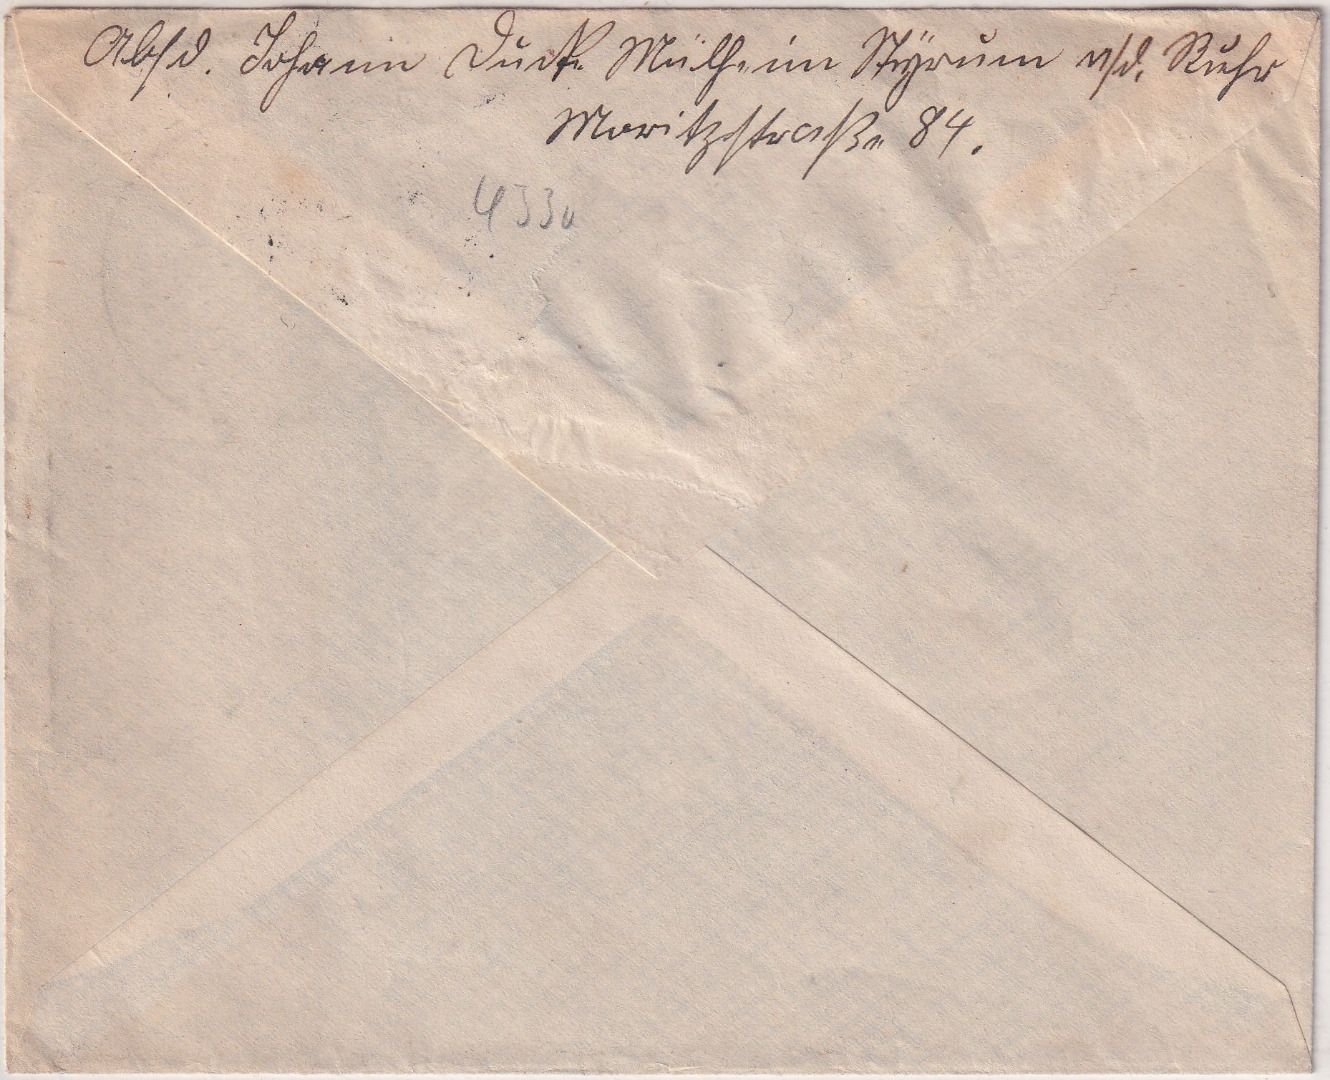 Abs/d. Johann Mülheim Styrum a/d. Ruhr
Moritzstraße 84.
433